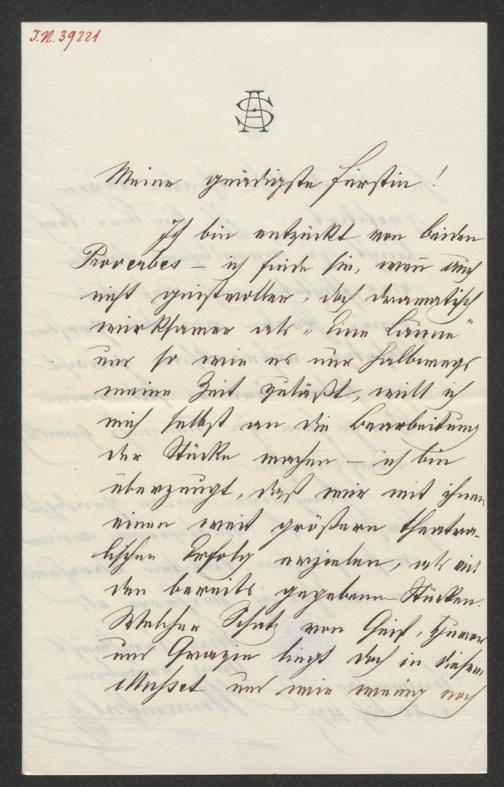 I.N. 39221
AS
Meine gnädigste Fürstin!
Ich bin entzückt von beiden
Proverbes – ich finde sie, wenn auch
nicht geistvoller, doch dramatisch
wirksamer als „Eine Laune"
und so wie es nur halbwegs
meine Zeit zuläßt, will ich
mich selbst an die Bearbeitung
der Stücke machen – ich bin
überzeugt, daß wir mit ihnen
einen weit größern theatra-
lischen Erfolg erzielen, als mit
den bereits gegebenen Stücken.
Welcher Schatz von Geist, Humor
und Grazie liegt doch in diesem
Musset und wie wenig noch